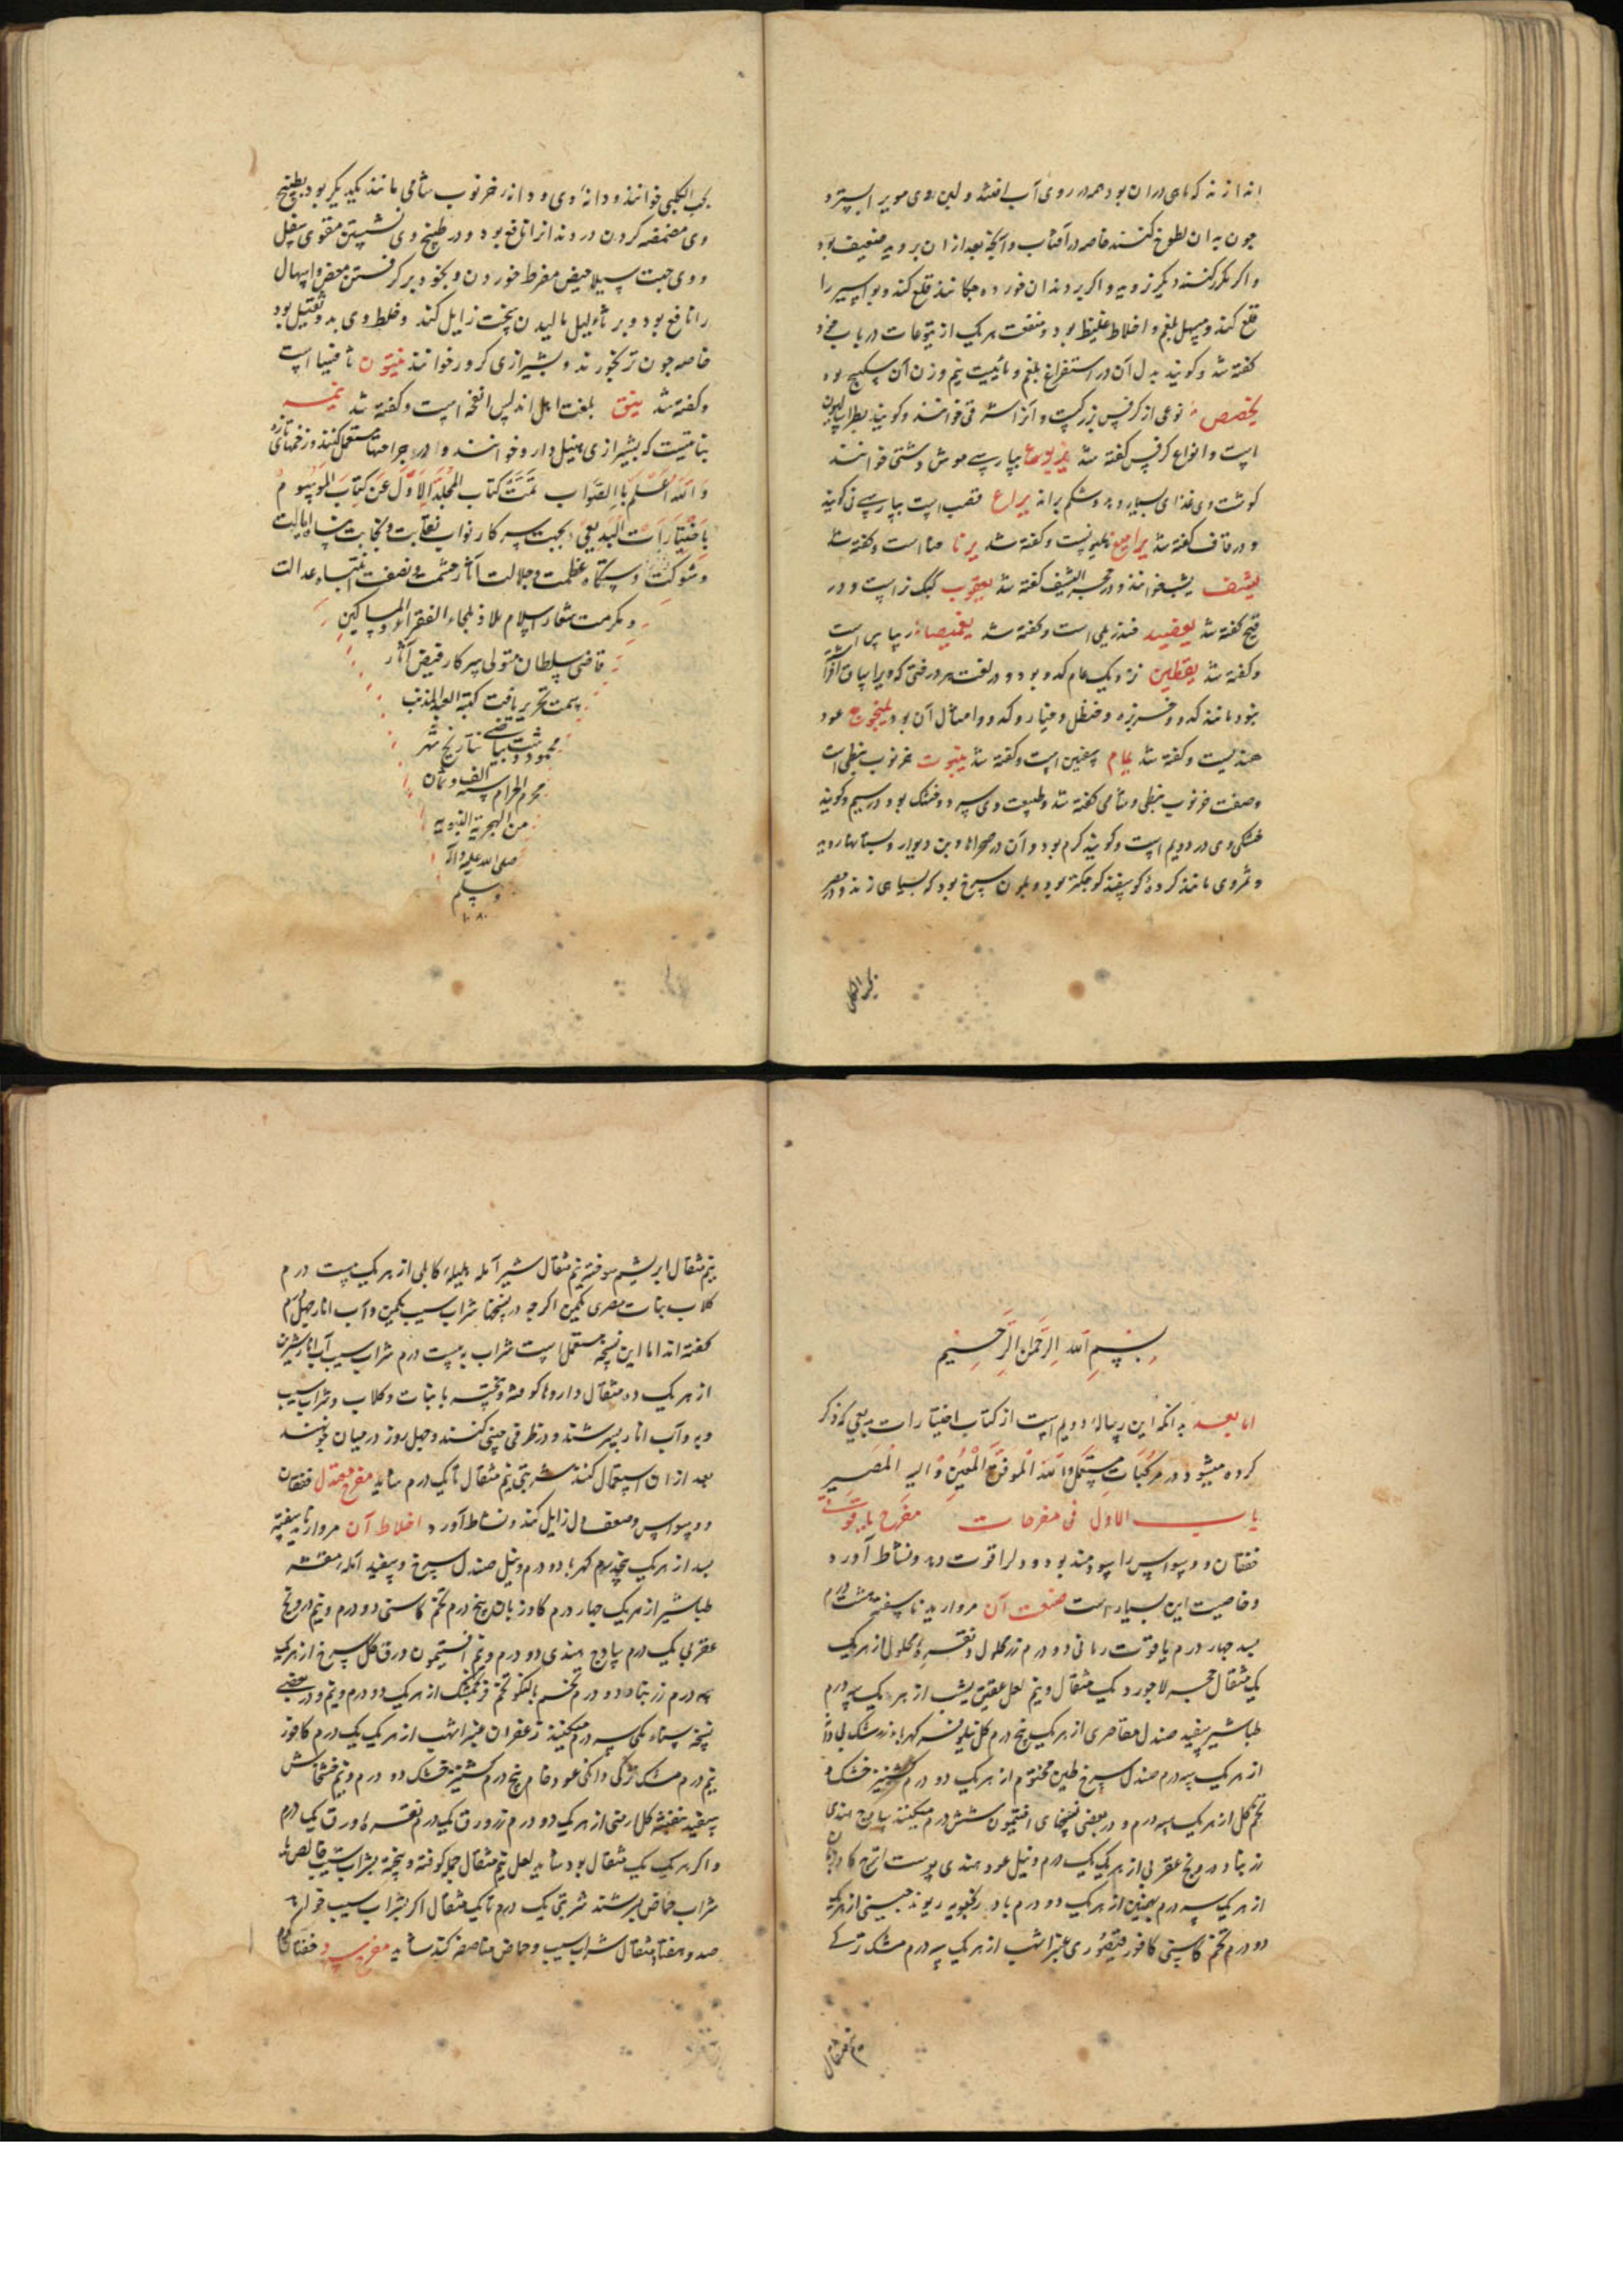 جون به ان لطوخ کنند خاصه در آفتاب و آنچه بعد از ان بروید ضعیف بود
و اکر مکرر کنند دیکر نروید و اکر بر دندان خورده جکانند قلع کند و بواسیر را
قلع کند و مسهل بلغم و اخلاط غلیظ بود و منفعت هر یک از یتوعات در باب خود
کفته شد و کویند بدل آن در استفراغ بلغم و مائیت نیم وزن آن سکبینج بود
نوعی از کرفس بزرکست و آنرا مشرقی خوانند و کویند
است و انواع کرفس کفته شد یربوع بپارسی موش دشتی خوانند
کوشت وی غذای بسیار دهد و شکم براند یراع قصب است بپارسی نی کویند
و در قاف کفته شد یرامیع است و کفته شد یرنا حنا است و کفته شد
یشف یشب خوانند و در حجر الیشف کفته شد یعقوب کبک نر است و در
قبج کفته شد یعضید خندریلی است و کفته شد
و کفته شد یقطین نزدیک عام کدو بود و در لغت هر درختی که ویرا ساق
نبود مانند کدو و خربزه و حنظل و خیار و کدو و امثال آن بود یلنجوج عود
هندیست و کفته شد یمام شفنین است و کفته شد ینبوت خرنوب نبطی است
و صفت خرنوب نبطی و شامی کفته شد و طبیعت وی سرد و خشک بود در سیم و کویند
خشکی وی در دویم است و کویند کرم بود و آن در صحراها و بن دیوار و بستانها روید
و ثمر وی مانند کرده کوسفند کوجکتر بود و بلون سرخ بود که بسیاهی زند و در مصر
بحب الکلی خوانند و دانه وی و دانه خرنوب شامی مانند یکدیکر بود بطبیخ
وی مضمضه کردن درد دندانرا نافع بود و در طبیخ وی نشستن مقوی سفل
و وی جهت سیلان حیض مفرط خوردن و بخود بر کرفتن و اسهال
را نافع بود و بر ثاولیل مالیدن سخت زایل کند و خلط وی بد و ثقیل بود
خاصه جون تر بخورند و بشیرازی کرور خوانند ینتون ثافسیا است
و کفته شد ینق بلغت اهل اندلس انفحه است و کفته شد ینمه
نباتیست که بشیرازی نیل دارو خوانند و در جراحتها مستعمل کنند و زخمهای تازه
وَ اللهُ اَعْلَم بِالصَّواب تَمَّتْ کتاب المجلد الاوّل عن کتاب الموسوم
باختیارات البدیعی بجهت سرکار نواب نقابت و نجابت پناه ایالت
و شوکت دستکاه عظمت و جلالت آثار حشمت و نصفت انتباه عدالت
و مکرمت شعار اسلام ملاذ ملجاء الفقراء و المساکین
قاضی سلطان متولی سرکار فیض آثار
سمت تحریر یافت کتبه العبد المذنب
محمود دشت بیاضی بتاریخ شهر
محرم الحرام سنه الف و ثمان
من الهجریة النبویه
صلی الله علیه و اله
و سلم
۱۰۸۰
بسم الله الرحمن الرحیم
اما بعد بدانکه این رساله دویم است از کتاب اختیارات بدیعی که ذکر
کرده میشود در مرکبات مستعمل و الله الموفق المعین و الیه المصیر
باب الاول فی مفرحات مفرح یاقوتی
خفقان و وسواس را سودمند بود و دلرا قوت دهد و نشاط آورد
و خاصیت این بسیار است صنعت آن مروارید ناسفته هشت درم
بسد چهار درم یاقوت رمانی دو درم زر محلول و نقره محلول از هر یک
یک مثقال حجر لاجورد یک مثقال و نیم لعل عقیق یشب از هر یک سه درم
طباشیر سفید صندل مقاصری از هر یک پنج درم کل نیلوفر کهربا زرشک بی دانه
از هر یک سه درم صندل سرخ طین مختوم از هر یک دو درم کشنیز خشک و
تخم کل از هر یک سه درم و در بعضی نسخهای افتیمون شش درم میکنند سادج هندی
زرنباد درونج عقربی از هر یک یک درم و نیل عود هندی پوست اترج کاوزبان
از هر یک سه درم بهمنین از هر یک دو درم بادرنجبویه ریوند جینی از هر یک
دو درم تخم کاسنی کافور قیصوری عنبر اشهب از هر یک سه درم مشک ترکی
نیم مثقال
نیم مثقال ابریشم سوخته نیم مثقال شیر آمله هلیله کابلی از هر یک بیست درم
کلاب نبات مصری یکمن اکر چه در نسخها شراب سیب یکمن و آب انار جهل درم
کفته اند اما این نسخه مستعمل است شراب به بیست درم شراب سیب آب انار شیرین
از هر یک ده مثقال داروها کوفته و بیخته با نبات و کلاب و شراب سیب
و به و آب انار بسرشند و در ظرفی چینی کنند و چهل روز در میان جو نهند
بعد از ان استعمال کنند شربتی نیم مثقال تا یک درم شاید مفرح معتدل خفقان
و وسواس و ضعف دل زایل کند و نشاط آورد اخلاط آن مروارید ناسفته
بسد از هر یک پنج درم کهربا دو درم و نیل صندل سرخ و سفید آمله مقشر
طباشیر از هر یک چهار درم کاوزبان پنج درم تخم کاسنی دو درم و نیم درونج
عقربی یک درم سادج هندی دو درم و نیم افتیمون ورق کل سرخ از هر یک
سه درم زرنباد دو درم تخم بالنکو تخم فرنجمشک از هر یک دو درم و نیم و در بعضی
نسخه سناء مکی سه درم میکنند زعفران عنبر اشهب از هر یک یک درم کافور
نیم درم مشک ترکی دانکی عود خام پنج درم کشنیز خشک دو درم و نیم خشخاش
سفید بنفشه کل ارمنی از هر یک دو درم زر ورق یک درم نقره ورق یک درم
و اکر هر یک یک مثقال بود شاید لعل نیم مثقال جمله کوفته و بیخته بشراب سیب خالص یا
شراب حماض بسرشند شربتی یک درم تا یک مثقال اکر بشراب سیب خواهند
صد و هفتاد مثقال شراب سیب و حماض مناصفه کنند شاید مفرح سرد خفقان